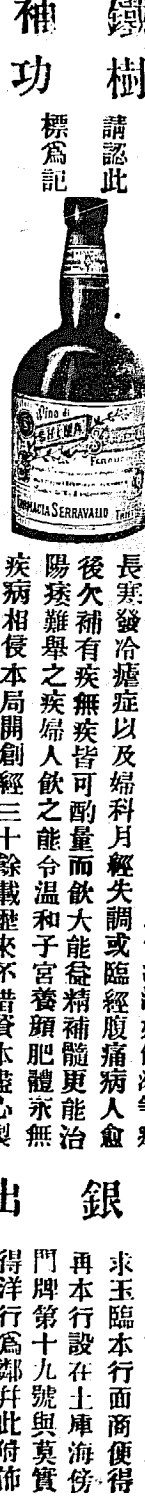 鐵樹
補功
請認此
標為記
Vino di
CHINA
FARMACIA SERRAVALLO
長寒發冷瘧症以及婦科月經失調或臨經腹痛病人愈
後欠補有疾無疾皆可酌量而飲大能益精補髓更能治
陽痿難舉之疾婦人飲之能令溫和子宮養顏肥體永無
疾病相侵本局開創經三十餘載歷來不惜資本盡心製
銀
出
求玉臨本行面商便得
再本行設在土庫海傍
門牌第十九號與莫實
得洋行為鄰幷此附佈